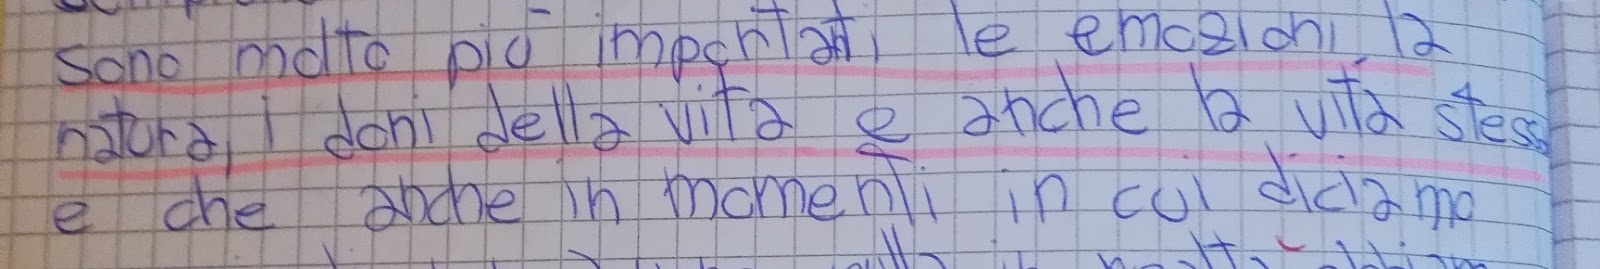 sono molto più importati, le emozioni, la
natura, i doni della vita e anche la vita stess
e che anche in momenti in cui diciamo